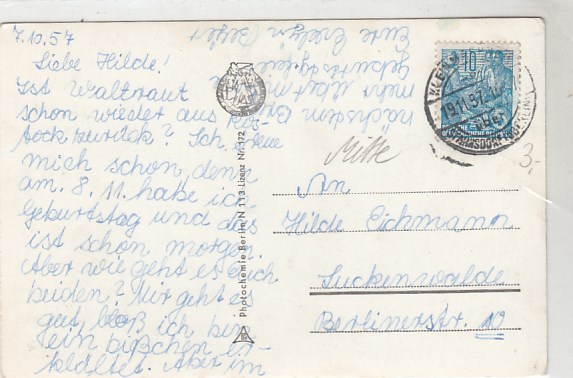 7.10.57
Liebe Hilde!
Ist Waltraut
schon wieder aus Ros-
tock zurück? Ich freue
mich schon denn
am 8. 11. habe ich
Geburtstag und das
ist schon morgen.
Aber wie geht es Euch
beiden? Mir geht es
gut, bloß ich bin
ein bißchen er-
kältet. Aber im
nächsten
mehr
Eure Evelyn
Photochemie Berlin N 113 Lizenz Nr. 172
10
19.11.57
Mitte
3,-
An
Hilde Eichmann
Luckenwalde
Berlinerstr. 19